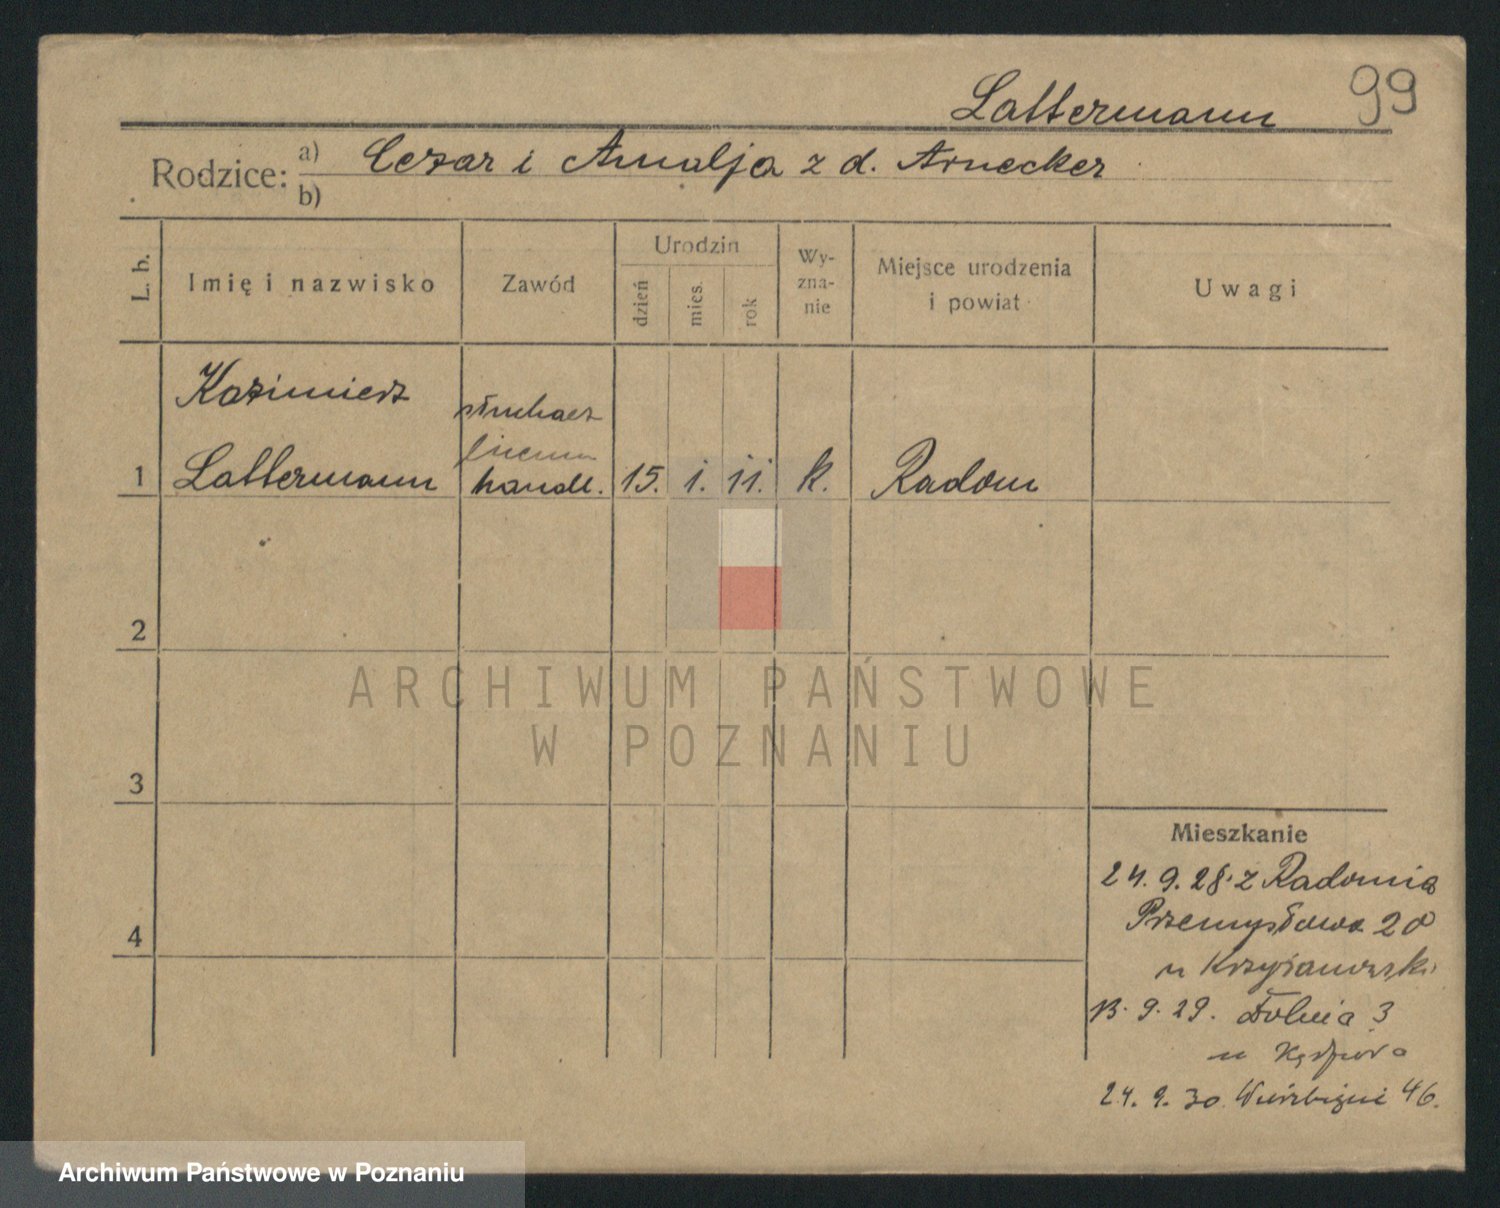 Lattermann 99
Rodzice: a) Cezar i Amalja z d. Arnecker
b)
L. b. Imię i nazwisko Zawód Urodzin dzień mies. rok Wy-zna-nie Miejsce urodzenia i powiat Uwagi
Kazimierz słuchacz
liceum
1 Lattermann handl. 15. i. 11. k. Radom
2
ARCHIWUM PAŃSTWOWE
W POZNANIU
3
Mieszkanie
24. 9. 28. z Radomia
Przemysłowa 20
4
u Krzyżanowski
13. 9. 29. Dolnia 3
u
24. 9. 30 Wierzbięcice 46.
Archiwum Państwowe w Poznaniu